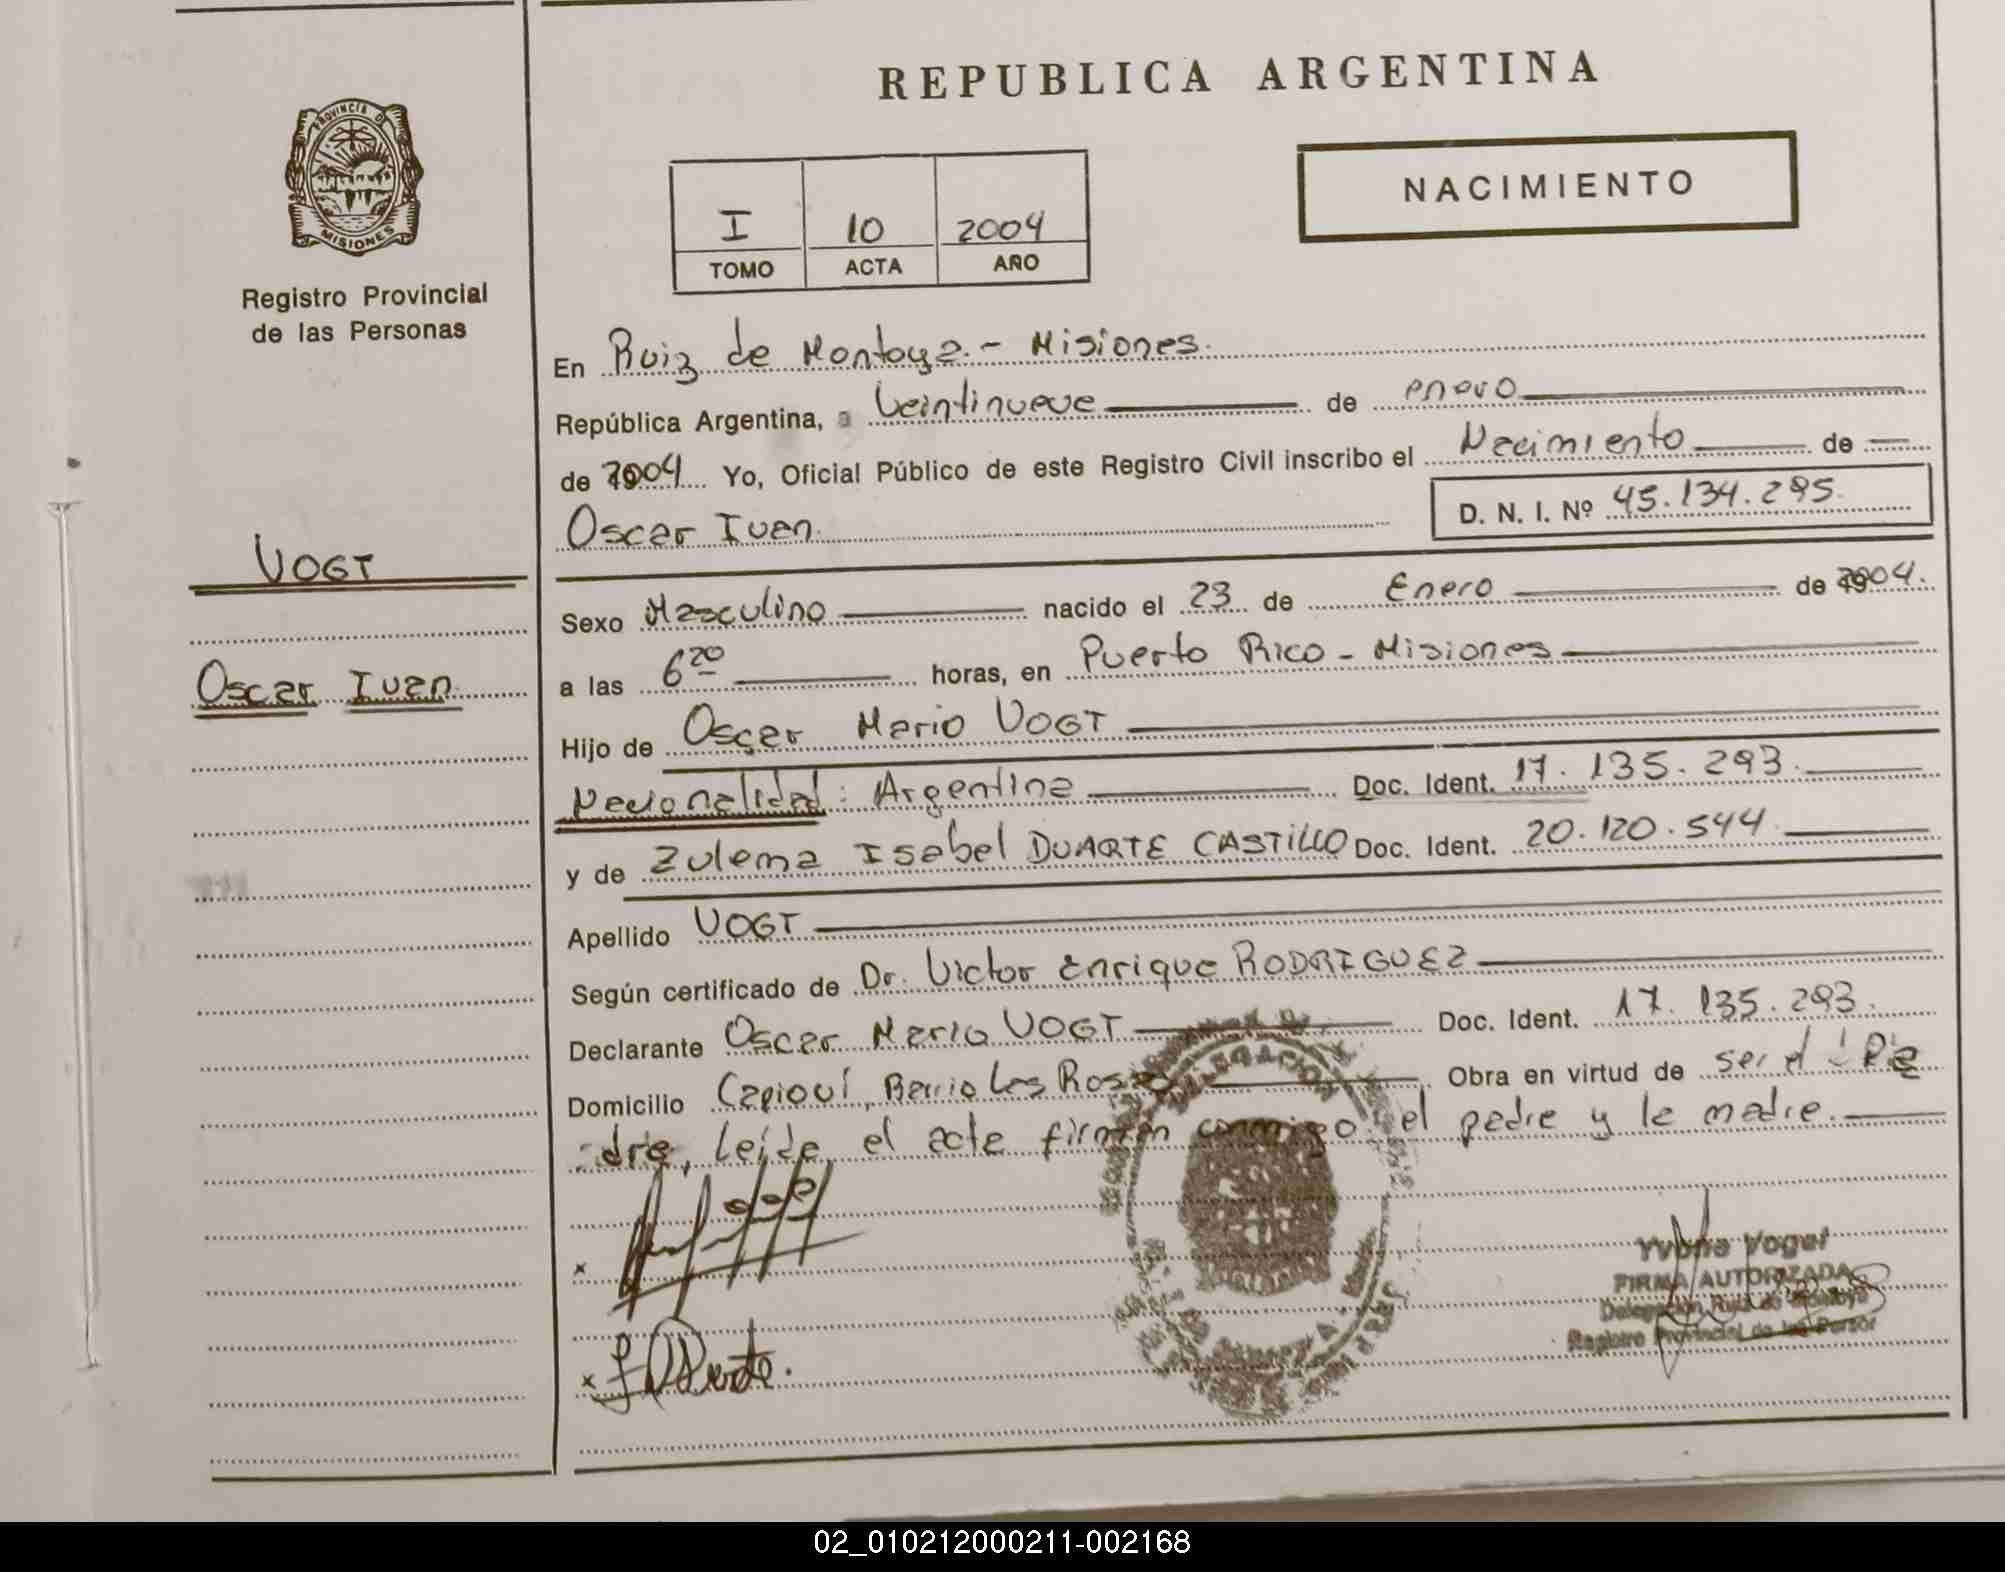 REPUBLICA ARGENTINA
PROVINCIA DE
MISIONES
Registro Provincial
de las Personas
NACIMIENTO
I 10 2004
TOMO ACTA AÑO
En Ruiz de Montoya.- Misiones.
República Argentina, a Veintinueve de enero
de 2004 Yo, Oficial Público de este Registro Civil inscribo el Nacimiento de
Oscar Ivan. D. N. I. Nº 45.134.295.
VOGT
Oscar Ivan.
Sexo Masculino nacido el 23 de Enero de 2004.
a las 6 20 horas, en Puerto Rico - Misiones
Hijo de Oscar Mario VOGT
Nacionalidad: Argentina Doc. Ident. 17.135.293.
y de Zulema Isabel DUARTE CASTILLO Doc. Ident. 20.120.544
Apellido VOGT
Según certificado de Dr. Victor Enrique RODRIGUEZ
Declarante Oscar Mario VOGT Doc. Ident. 17.135.293.
Domicilio Capioví, Barrio Las Rosas Obra en virtud de ser el
dre, leída el acta firman conmigo el padre y la madre.
x
x
Yvone Vogel
FIRMA AUTORIZADA
Delegación Ruiz de Montoya
Registro Provincial de las Person
02_010212000211-002168